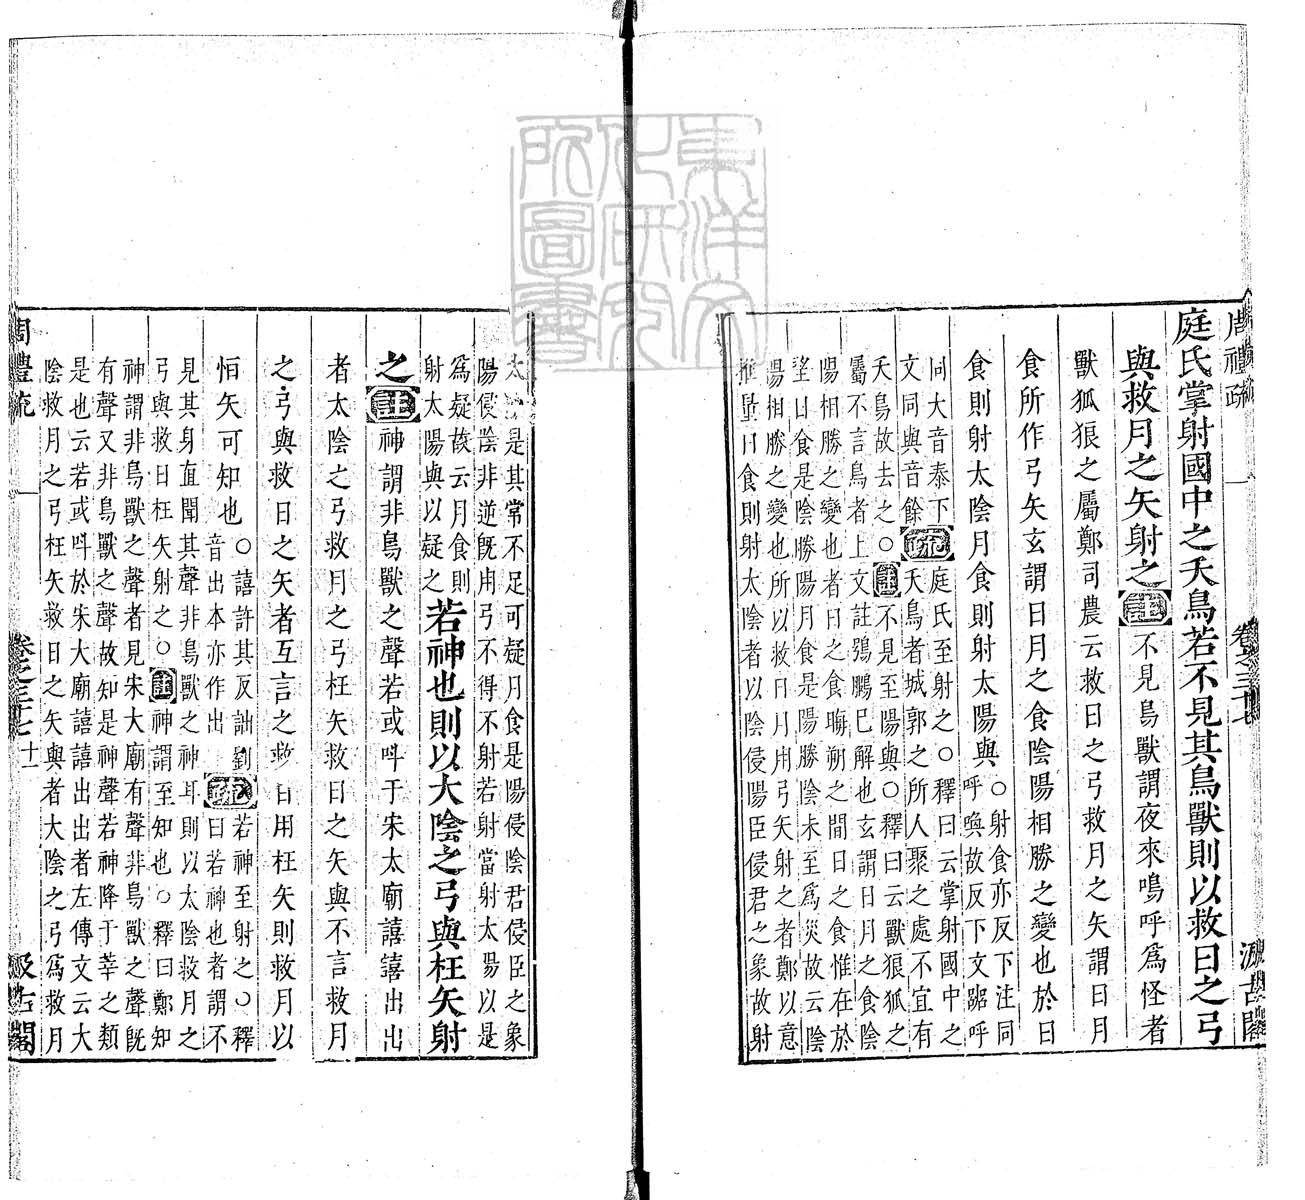 周禮疏
卷之三十七
汲古閣
庭氏掌射國中之夭鳥若不見其鳥獸則以救日之弓
與救月之矢射之註不見鳥獸謂夜來鳴呼爲怪者
獸狐狼之屬鄭司農云救日之弓救月之矢謂日月
食所作弓矢玄謂日月之食陰陽相勝之變也於日
食則射太陰月食則射太陽與
○射食亦反下注同
呼喚故反下文嘂呼
同大音泰下
文同與音餘
疏
庭氏至射之○釋曰云掌射國中之
夭鳥者城郭之所人聚之處不宜有
夭鳥故去之○註不見至陽與○釋曰云獸狼狐之
屬不言鳥者上文註鴞鵩已解也玄謂日月之食陰
陽相勝之變也者日之食晦朔之間日之食惟在於
望日食是陰勝陽月食是陽勝陰未至爲災故云陰
陽相勝之變也所以救日月用弓矢射之者鄭以意
推量日食則射太陰者以陰侵陽臣侵君之象故射
太陰是其常不足可疑月食是陽侵陰君侵臣之象
陽侵陰非逆旣用弓不得不射若射當射太陽以是
爲疑故云月食則
射太陽與以疑之
若神也則以大陰之弓與枉矢射
之註神謂非鳥獸之聲若或呌于宋太廟譆譆出出
者太陰之弓救月之弓枉矢救日之矢與不言救月
之弓與救日之矢者互言之救日用枉矢則救月以
恒矢可知也
○譆許其反詘劉
音出本亦作出
疏
若神至射之○釋
曰若神也者謂不
見其身直聞其聲非鳥獸之神耳則以太陰救月之
弓與救日枉矢射之○註神謂至知也○釋曰鄭知
神謂非鳥獸之聲者見宋大廟有聲非鳥獸之聲旣
有聲又非鳥獸之聲故知是神聲若神降于莘之類
是也云若或呌於宋大廟譆譆出出者左傳文云大
陰救月之弓枉矢救日之矢與者大陰之弓爲救月
周禮疏
卷之三十七
十一
汲古閣
東洋文化研究所圖書